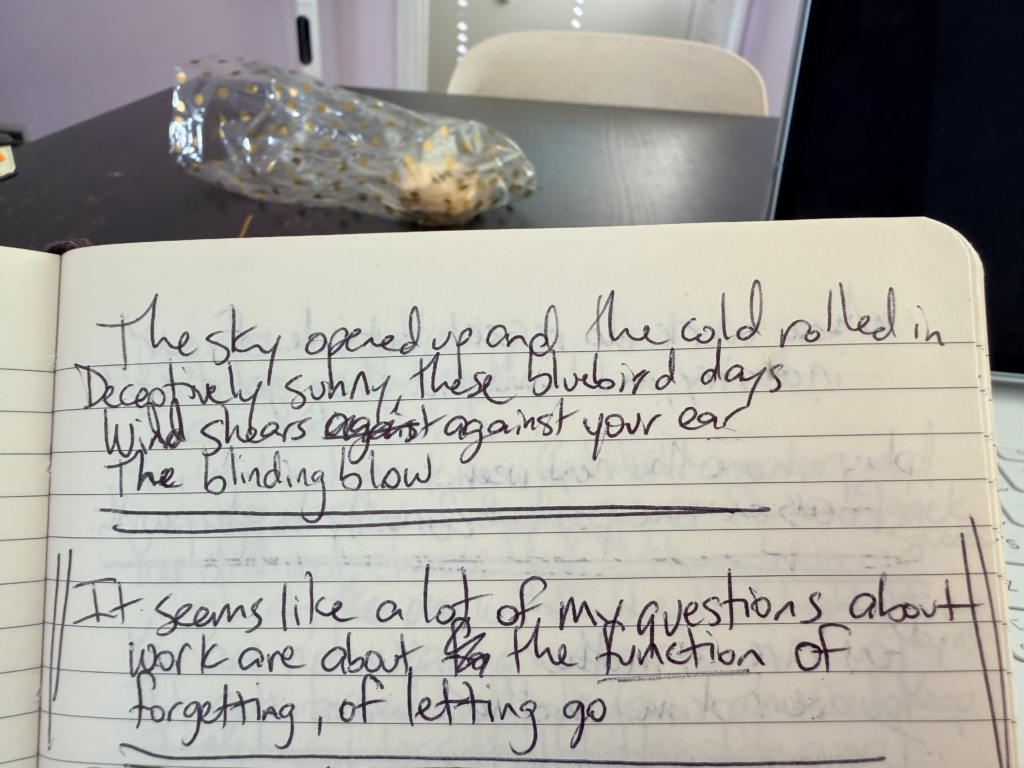 The sky opened up and the cold rolled in
Deceptively sunny, these bluebird days
Wind shears against against your ear
The blinding blow
It seems like a lot of my questions about
work are about the function of
forgetting, of letting go